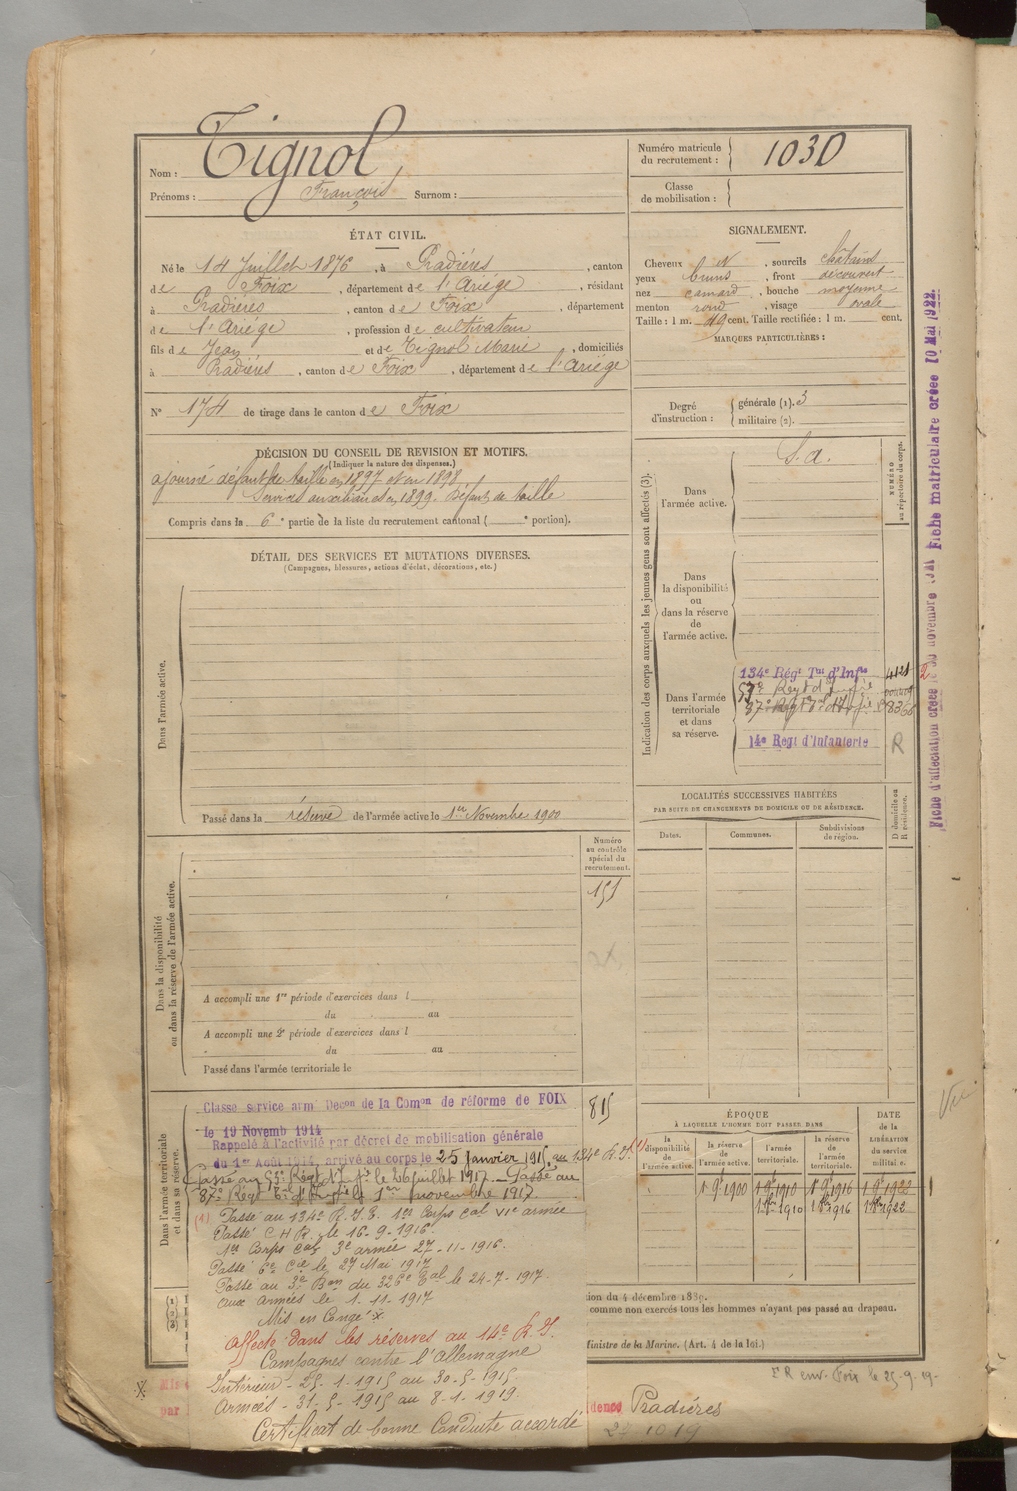 Nom : Tignol
Prénoms : François Surnom :
Numéro matricule du recrutement : 1030
Classe de mobilisation :
ÉTAT CIVIL.
Né le 14 Juillet 1876, à Pradières, canton
de Foix, département de l'Ariége, résidant
à Pradières, canton de Foix, département
de l'Ariége, profession de cultivateur
fils de Jean et de Tignol Marie, domiciliés
à Pradières, canton de Foix, département de l'Ariége
N° 174 de tirage dans le canton de Foix
SIGNALEMENT.
Cheveux N, sourcils châtains
yeux bruns, front découvert
nez camard, bouche moyenne
menton rond, visage ovale
Taille : 1 m. 49 cent. Taille rectifiée : 1 m. cent.
MARQUES PARTICULIÈRES :
Degré d'instruction : générale (1). 3
militaire (2).
DÉCISION DU CONSEIL DE REVISION ET MOTIFS.
(Indiquer la nature des dispenses.)
ajourné défaut de taille en 1897 et en 1898
Services auxiliaires en 1899. Défaut de taille
Compris dans la 6e partie de la liste du recrutement cantonal ( e portion).
DÉTAIL DES SERVICES ET MUTATIONS DIVERSES.
(Campagnes, blessures, actions d'éclat, décorations, etc.)
Dans l'armée active.
Passé dans la réserve de l'armée active le 1er Novembre 1900
Indication des corps auxquels les jeunes gens sont affectés (3).
NUMÉRO au répertoire du corps.
Dans l'armée active.
S. a.
Dans la disponibilité ou dans la réserve de l'armée active.
Dans l'armée territoriale et dans sa réserve.
134e Régt Tal d'Infie
53e Regt d'Infie
87e Regt Tal d'Infie 8368
14e Regt d'Infanterie R
LOCALITÉS SUCCESSIVES HABITÉES
PAR SUITE DE CHANGEMENTS DE DOMICILE OU DE RÉSIDENCE.
Dates. Communes. Subdivisions de région.
D domicile ou R résidence.
Dans la disponibilité ou dans la réserve de l'armée active.
Numéro au contrôle spécial du recrutement.
151
A accompli une 1re période d'exercices dans l
du au
A accompli une 2e période d'exercices dans l
du au
Passé dans l'armée territoriale le
Dans l'armée territoriale et dans sa réserve.
815
Classe service armé Décon de la Comon de réforme de FOIX
le 19 Novemb 1914
Rappelé à l'activité par décret de mobilisation générale
du 1er Août 1914, arrivé au corps le 25 janvier 1915, au 134e R.I. (1)
Passé au 53e Régt d'Infie le 26 juillet 1917. Passé au
87e Régt Tal d'Infie le 1er novembre 1917.
(1) Passé au 134e R.I.T. 1er Corps Cal VIe armée
Passé C H R. le 16-9-1916
1er Corps Cal 3e armée 27-11-1916.
Passé 6e Cie le 27 Mai 1917
Passé au 3e Ban du 326e Tal le 24-7-1917.
aux armées le 1-11-1917
Mis en Congé X
affecté dans les réserves au 14e R.I.
Campagnes contre l'Allemagne
Intérieur - 25-1-1915 au 30-5-1915
Armées - 31-5-1915 au 8-1-1919.
Certificat de bonne Conduite accordé
ÉPOQUE
À LAQUELLE L'HOMME DOIT PASSER DANS
la disponibilité de l'armée active. la réserve de l'armée active. l'armée territoriale. la réserve de l'armée territoriale.
DATE de la LIBÉRATION DU SERVICE militaire.
1 9bre 1900 1 9bre 1910 1 9bre 1916 1 9bre 1922
1 8bre 1910 1 8bre 1916 1 8bre 1922
tion du 4 décembre 1889.
comme non exercés tous les hommes n'ayant pas passé au drapeau.
Ministre de la Marine. (Art. 4 de la loi.)
env. Foix le 25-9-19-
X
Mis
par
dence Pradières
Fiche matriculaire créée 10 Mai 1922.
Fiche d'affectation créée
Vu